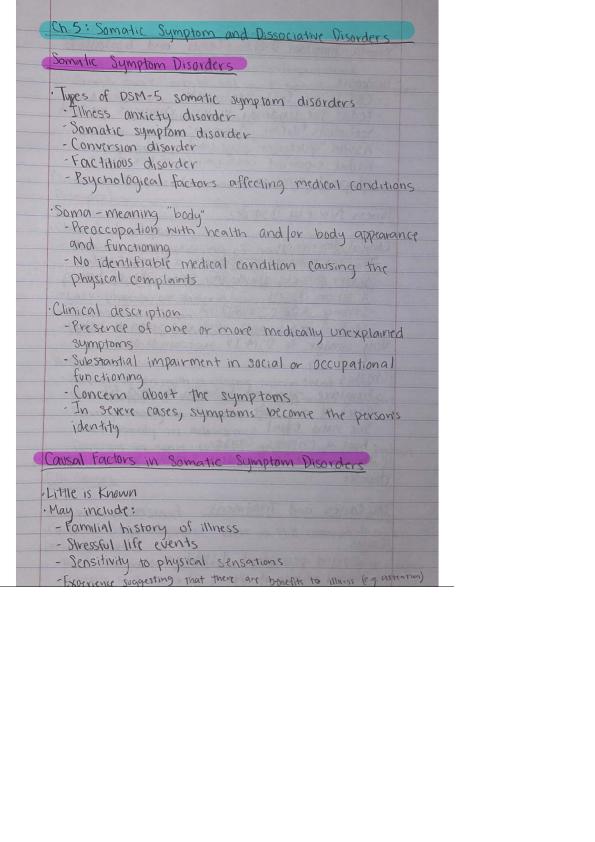 Ch.5: Somatic Symptom and Dissociative Disorders
Somatic Symptom Disorders
· Types of DSM-5 somatic symptom disorders
- Illness anxiety disorder
- Somatic symptom disorder
- Conversion disorder
- Factitious disorder
- Psychological factors affecting medical conditions
· Soma - meaning "body"
- Preoccupation with health and/or body appearance
and functioning
- No identifiable medical condition causing the
physical complaints
· Clinical description
- Presence of one or more medically unexplained
symptoms
- Substantial impairment in social or occupational
functioning
- Concern about the symptoms
- In severe cases, symptoms become the person's
identity
Causal Factors in Somatic Symptom Disorders
· Little is Known
· May include:
- Familial history of illness
- Stressful life events
- Sensitivity to physical sensations
- Experience suggesting that there are benefits to illness (e.g attention)